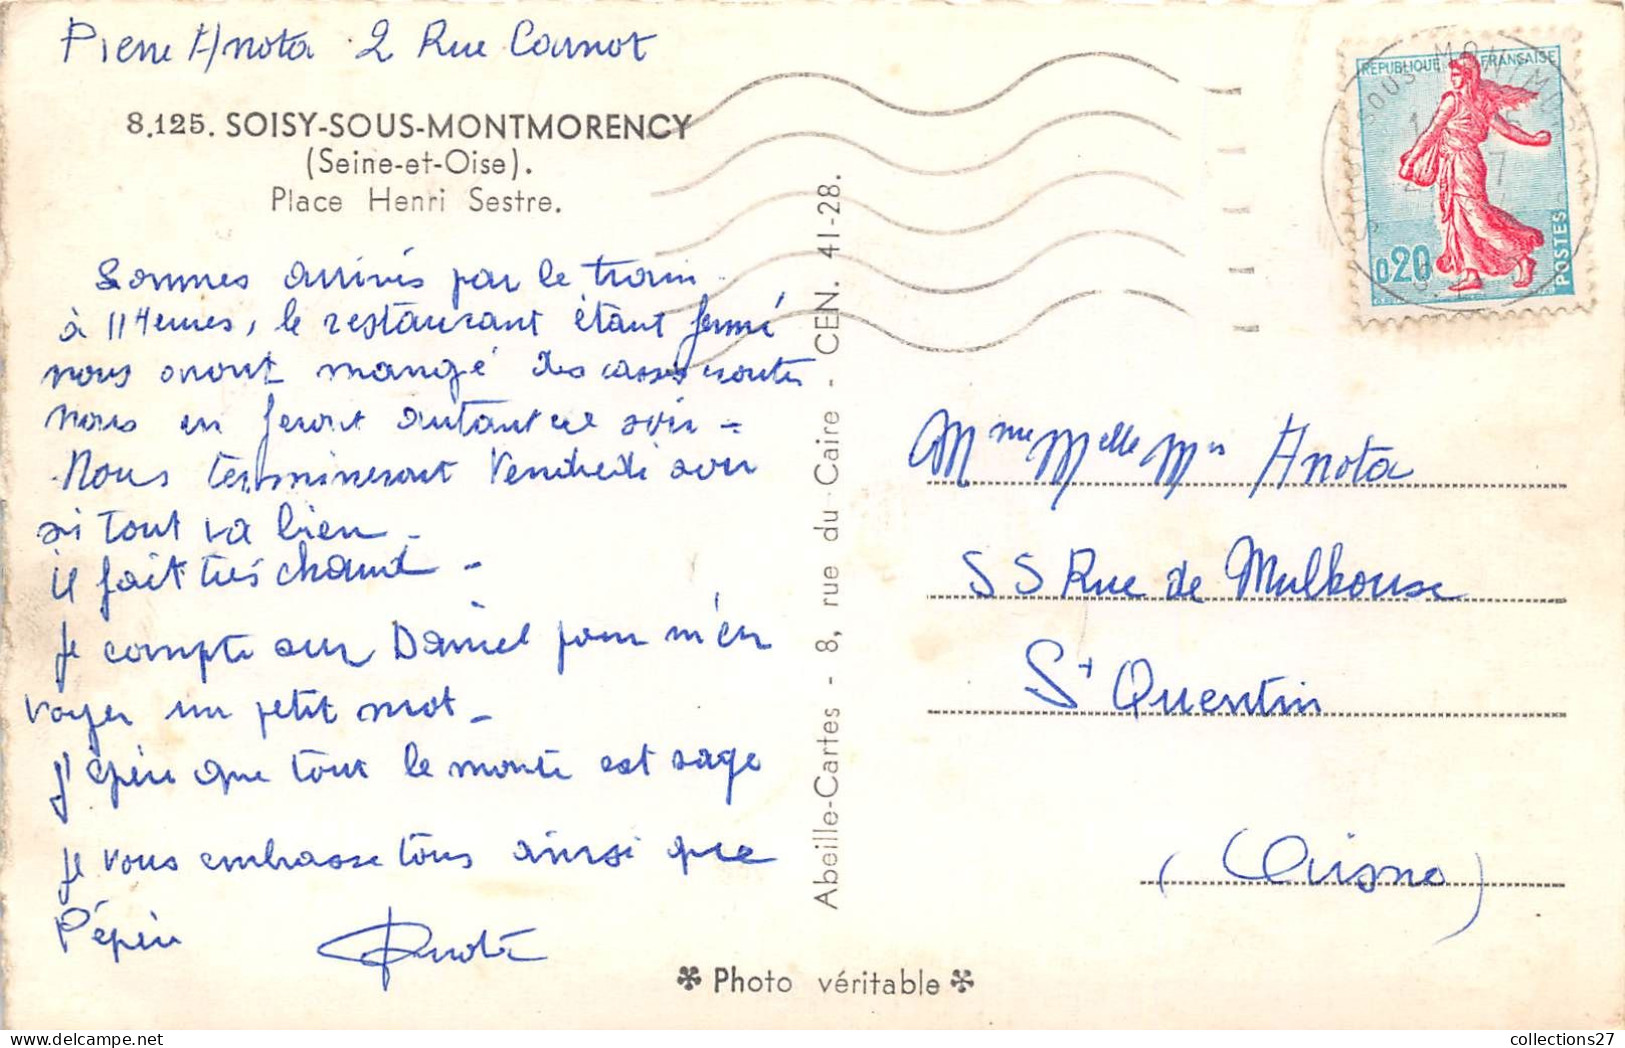 Pierre Anota 2 Rue Carnot
8.125. SOISY-SOUS-MONTMORENCY
(Seine-et-Oise).
Place Henri Sestre.
Sommes arrivés par le train
à 11 Hemes, le restaurant étant fermé
nous avont mangé des casses croutes
nous en feront autant ce soir -
Nous termineront Vendredi soir
si tout va bien -
il fait très chaud -
je compte sur Daniel pour m'en
voyer un petit mot -
j'espère que tout le monde est sage
je vous embrasse tous ainsi que
Pépère
Anota
Abeille-Cartes - 8, rue du Caire - CEN. 41-28.
✻ Photo véritable ✻
REPUBLIQUE FRANÇAISE
0,20
POSTES
SOUS MONTMO
Mme Melle Mrs Anota
55 Rue de Mulhouse
St Quentin
(Aisne)
collections27